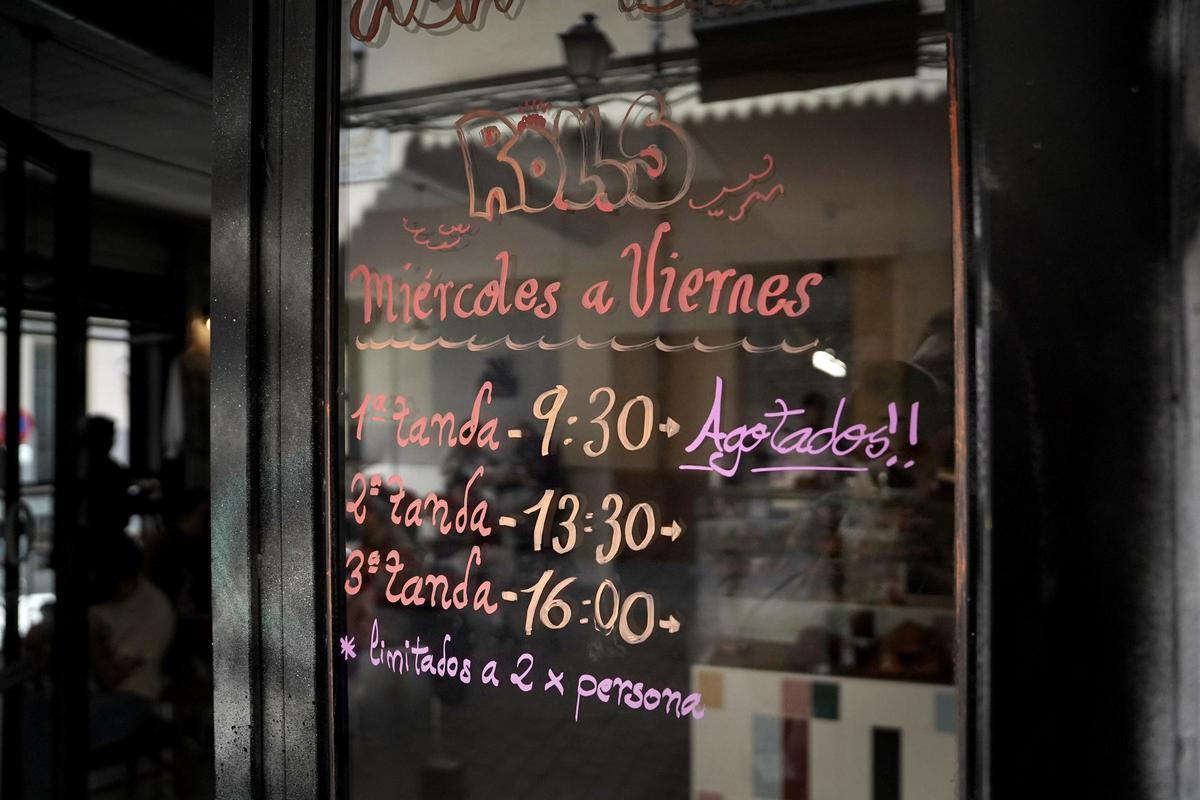 ROLS
Miércoles a Viernes
1ª tanda - 9:30 → Agotados!!
2ª tanda - 13:30 →
3ª tanda - 16:00 →
* limitados a 2 x persona